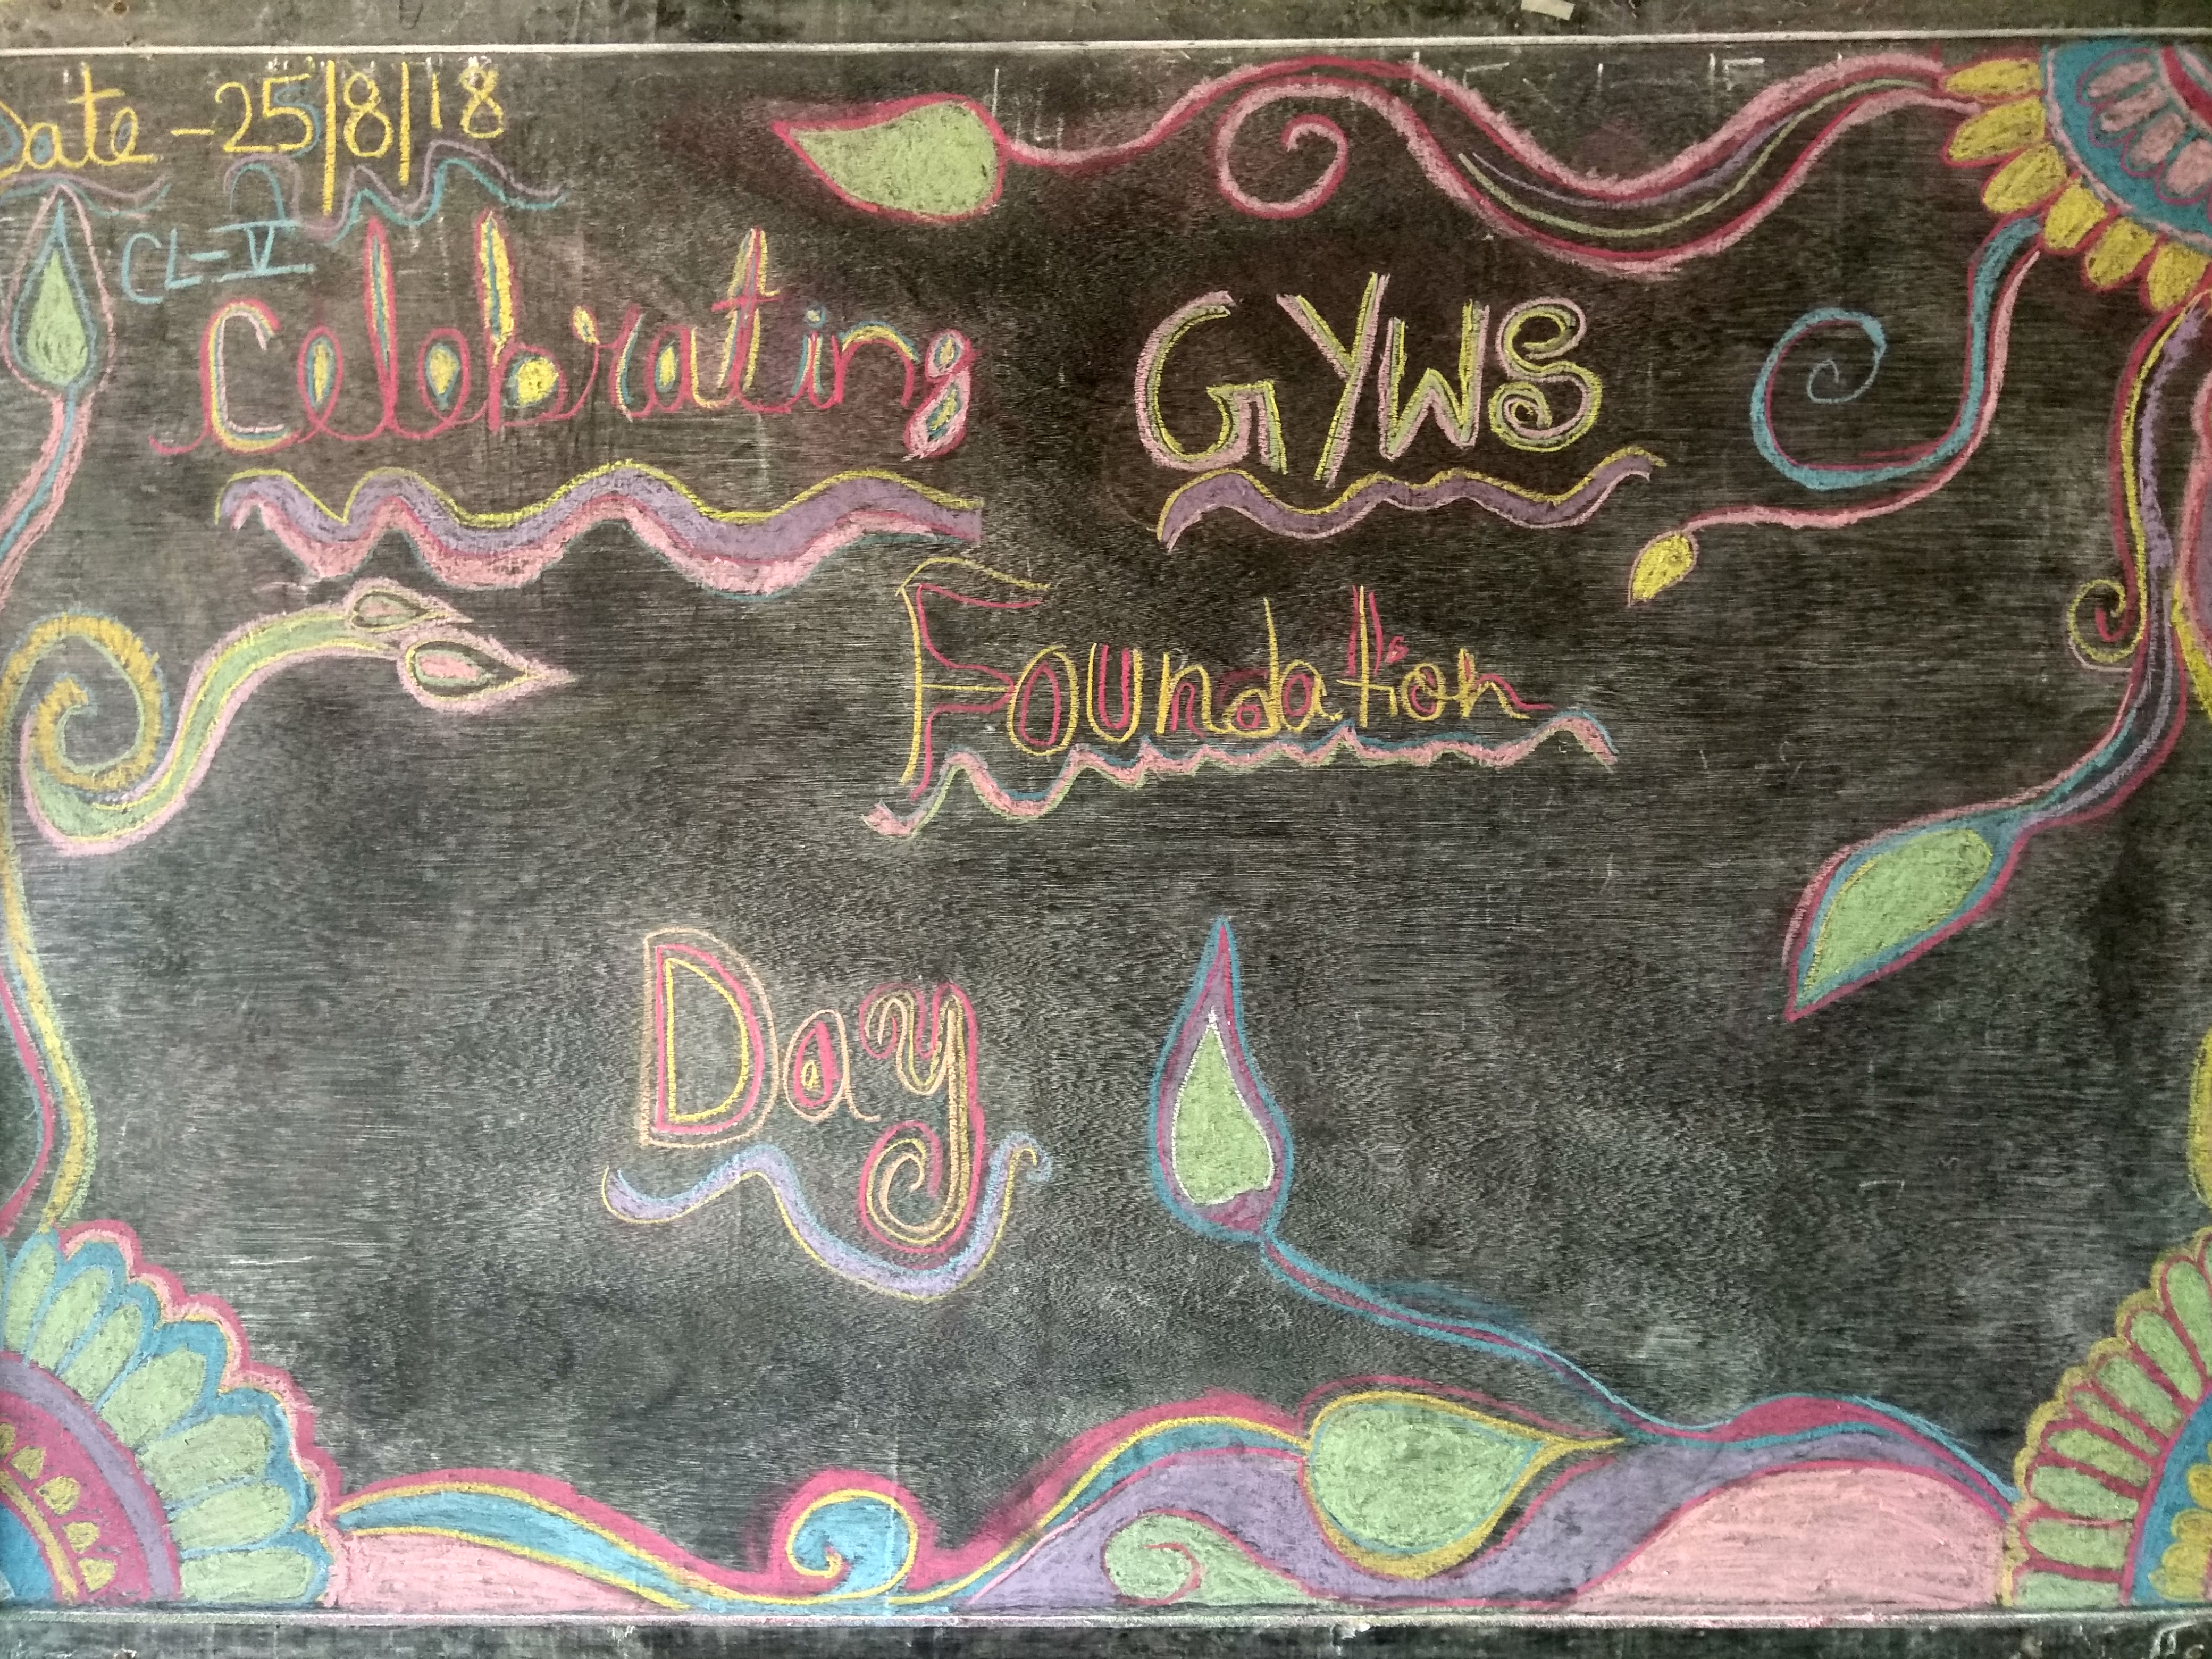 Date - 25/8/18
CL-V
Celebrating GYWS
Foundation
Day